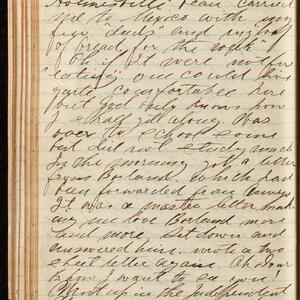 Holmesville. Jean carried
me to Mexico with my
few "duds" and my lot
of bread for the week"
Oh if it were not for
"eating" one could live
quite comfortable here
but God only knows how
I shall get along. Was
over to school some
but did not study much
In the morning got a letter
from Borland, which had
been forwarded from
It was a master letter, makes
me love Borland more
and more. Sat down and
answered him. wrote a two
sheet letter again. Oh Dear
how I want to see
up in the Independent